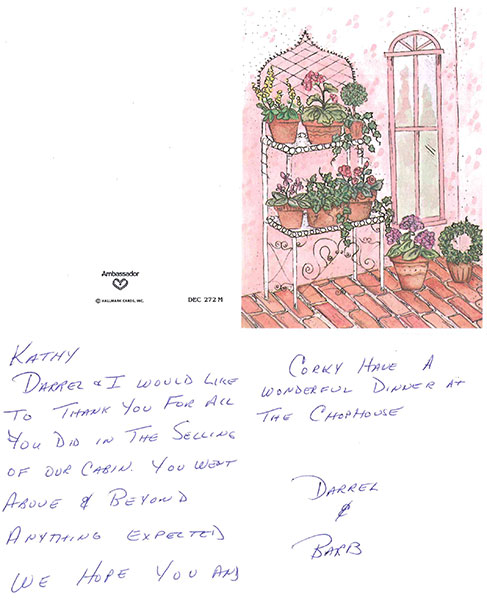 Ambassador
© HALLMARK CARDS, INC.
DEC 272 M
KATHY
DARREL & I WOULD LIKE
TO THANK YOU FOR ALL
YOU DID IN THE SELLING
OF OUR CABIN. YOU WENT
ABOVE & BEYOND
ANYTHING EXPECTED
WE HOPE YOU AND
CORKY HAVE A
WONDERFUL DINNER AT
THE CHOPHOUSE
DARREL
&
BARB